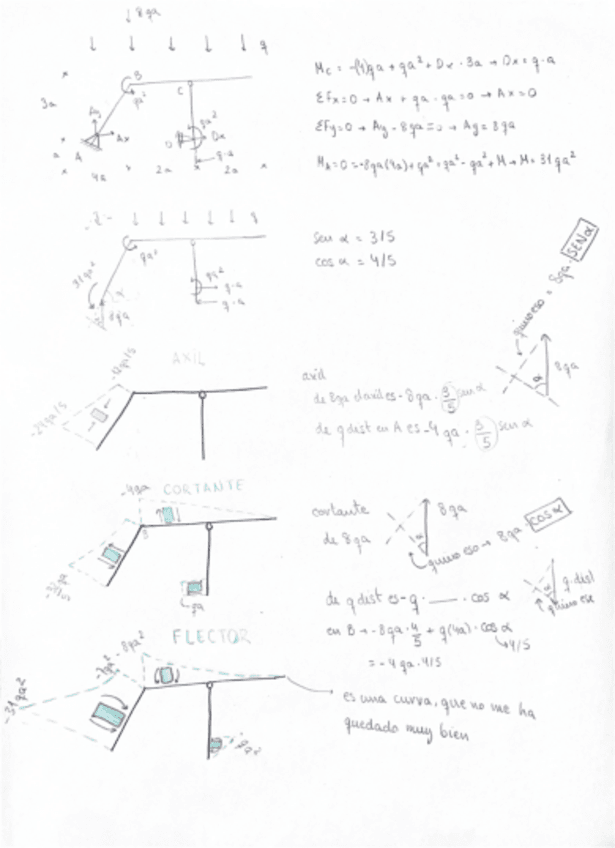 8qa
q
B
qa²
C
3a
Ay
Ax
A
qa²
D
Dx
q·a
a
4a
2a
2a
Mc = -(4)qa + qa² + Dx · 3a → Dx = q·a
ΣFx=0 → Ax + qa - qa = 0 → Ax=0
ΣFy=0 → Ay - 8qa = 0 → Ay = 8qa
MA=0 = -8qa(4a) + qa² + qa² - qa² + M → M = 31qa²
q
qa²
31qa²
α
8qa
qa²
q·a
q·a
sen α = 3/5
cos α = 4/5
quiero eso = 8qa · SEN α
α
8qa
AXIL
-12qa/5
-24qa/5
axil
de 8qa el axil es -8qa · 3/5 sen α
de q dist en A es -4qa · 3/5 sen α
CORTANTE
-4qa
B
qa
cortante
de 8qa
8qa
α
quiero eso → 8qa · cos α
de q dist es -q · ___ · cos α
q·dist
α
quiero ese
en B → -8qa · 4/5 + q(4a) · cos α
4/5
= -4qa · 4/5
FLECTOR
-8qa²
-7qa²
-31qa²
es una curva, que no me ha
quedado muy bien